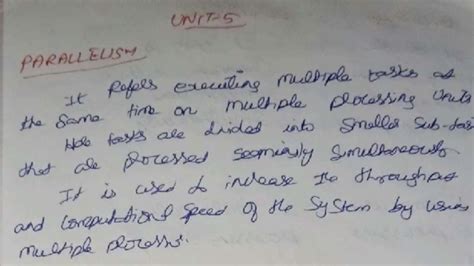 UNIT-5
PARALLELISM
It Refers executing multiple tasks at
the same time on multiple processing Units
Here tasks are divided into smaller sub-tas
that are processed seemingly simultaneously
It is used to increase the throughput
and computational speed of the system by using
multiple processs.